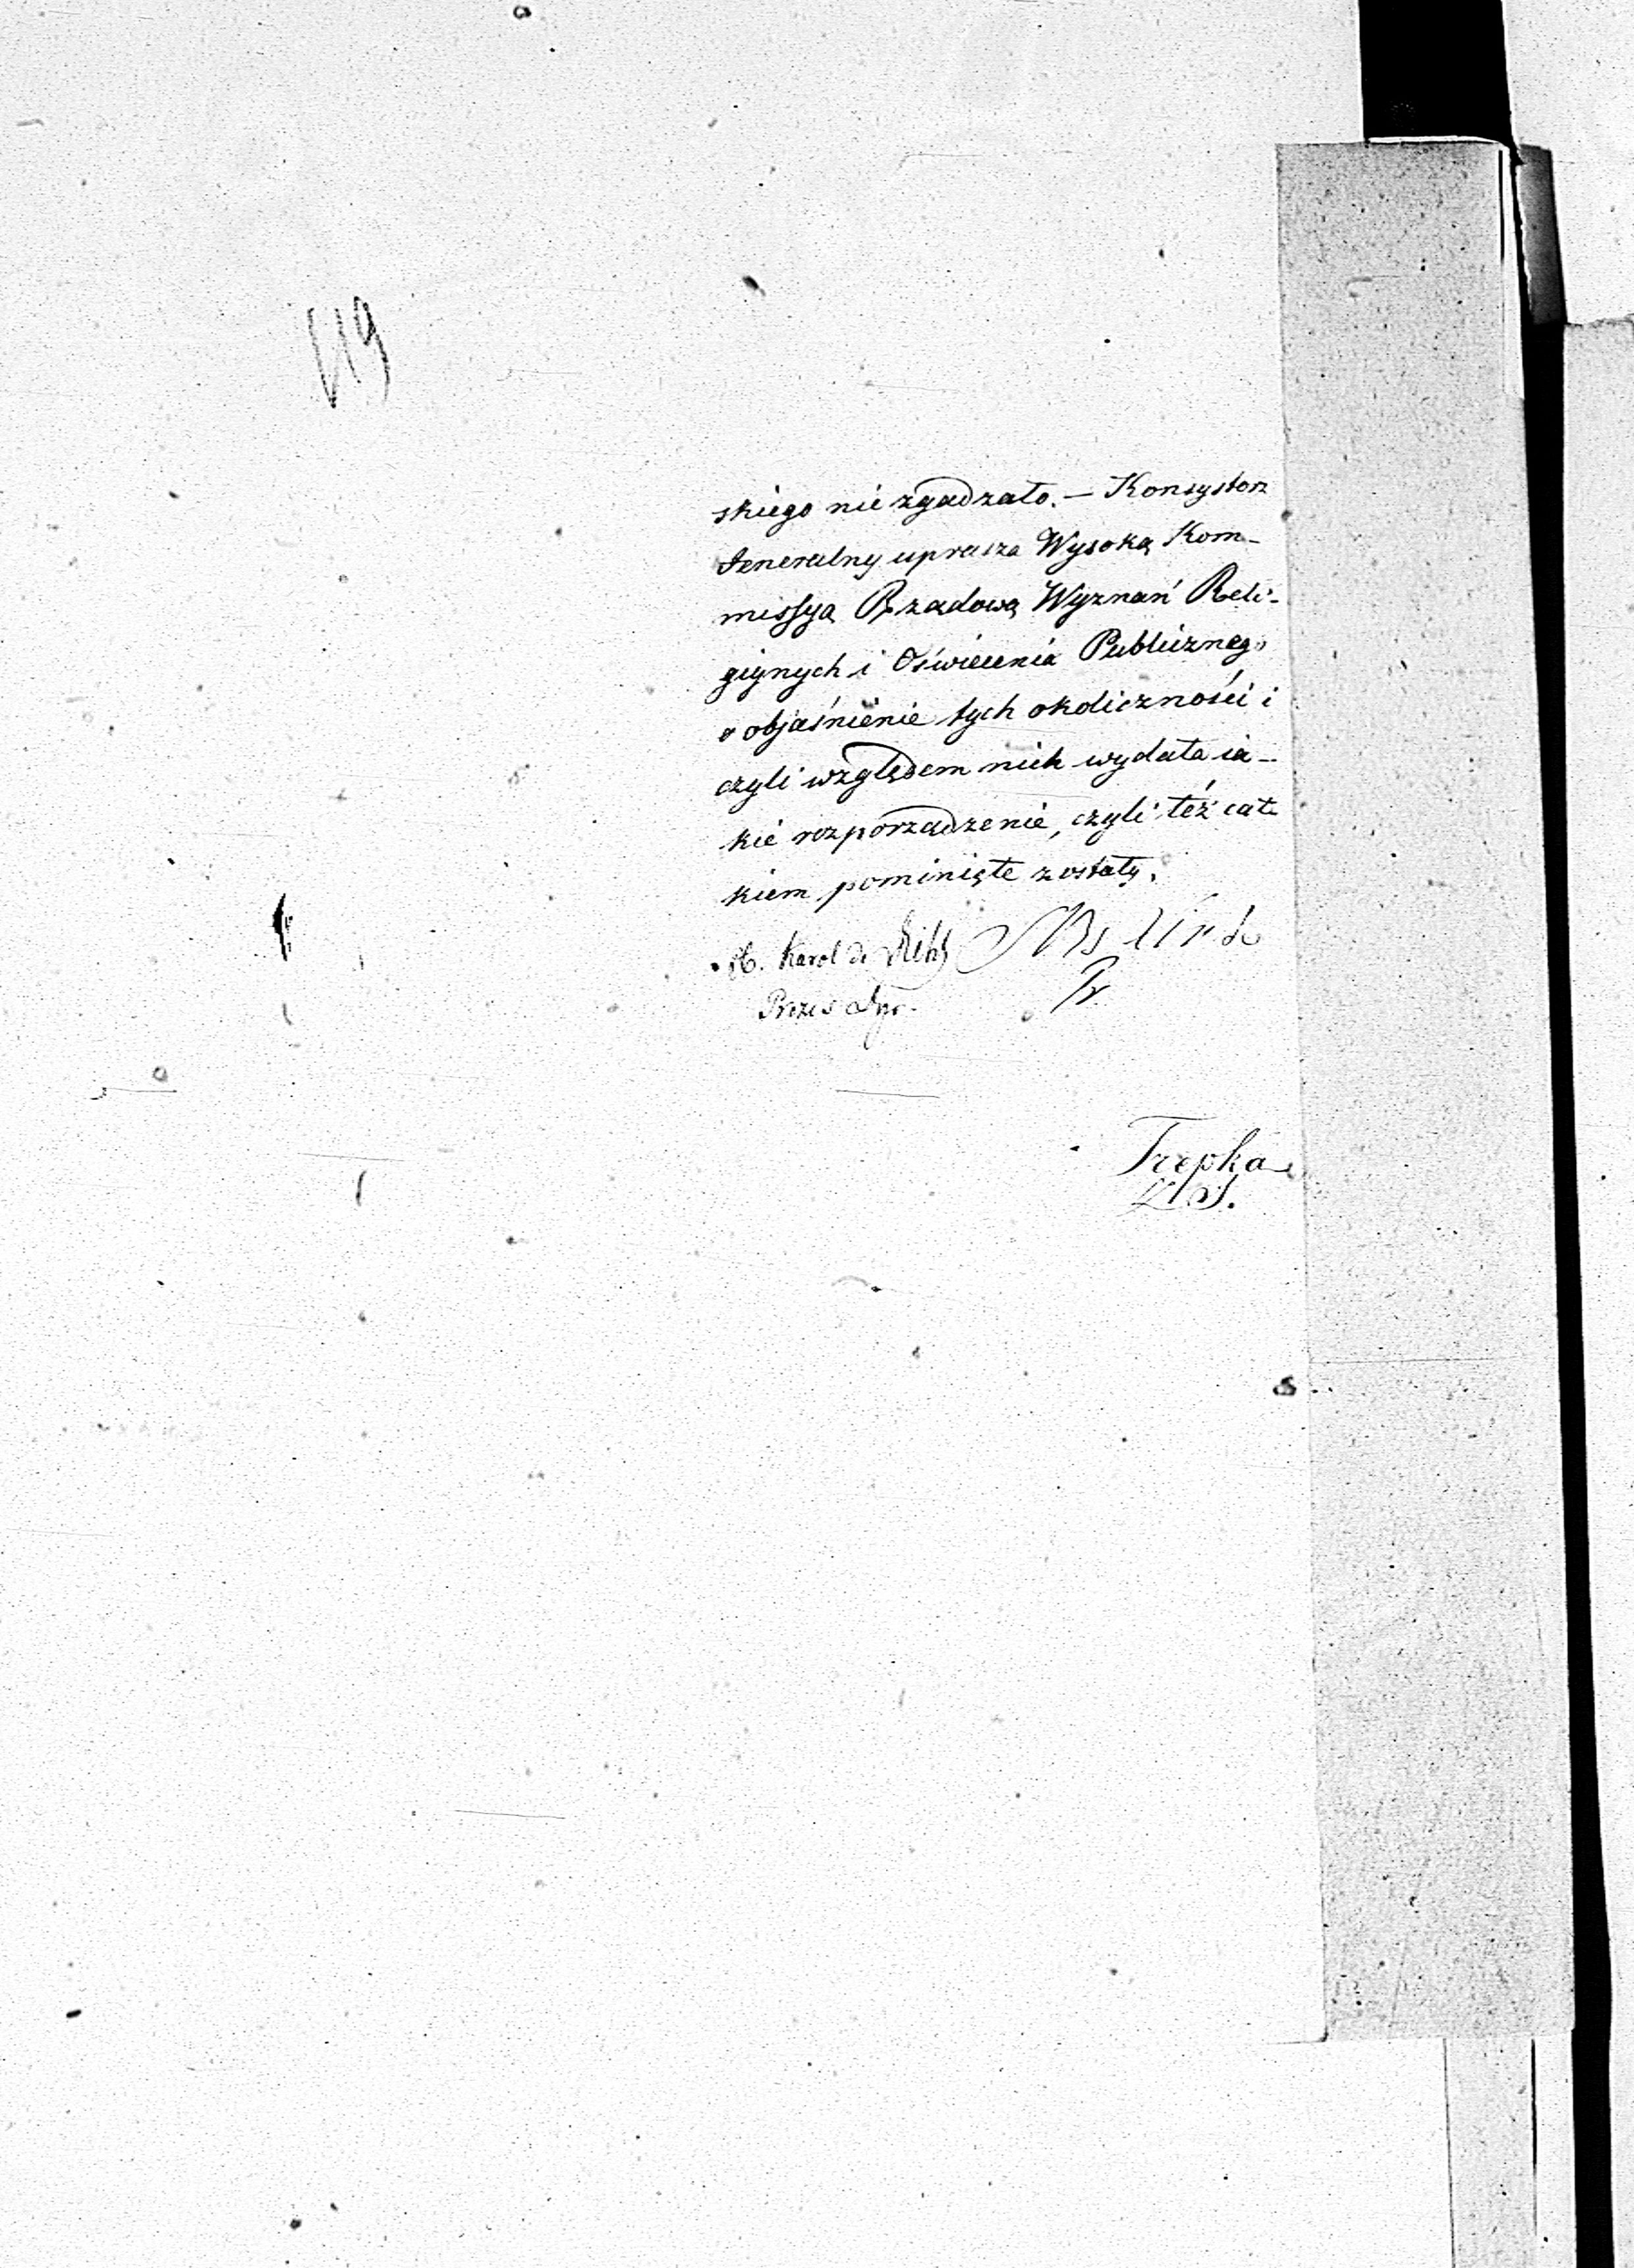 119
skiego nie zgadzało. — Konsystorz
Jeneralny uprasza Wysoką Kom-
missyą Rządową Wyznań Reli-
giynych i Oświecenia Publicznego
o objaśnienie tych okoliczności i
czyli względem nich wydała ia-
kie rozporządzenie, czyli też cał-
kiem pominięte zostały.
Karol de
Prezes
Trepka